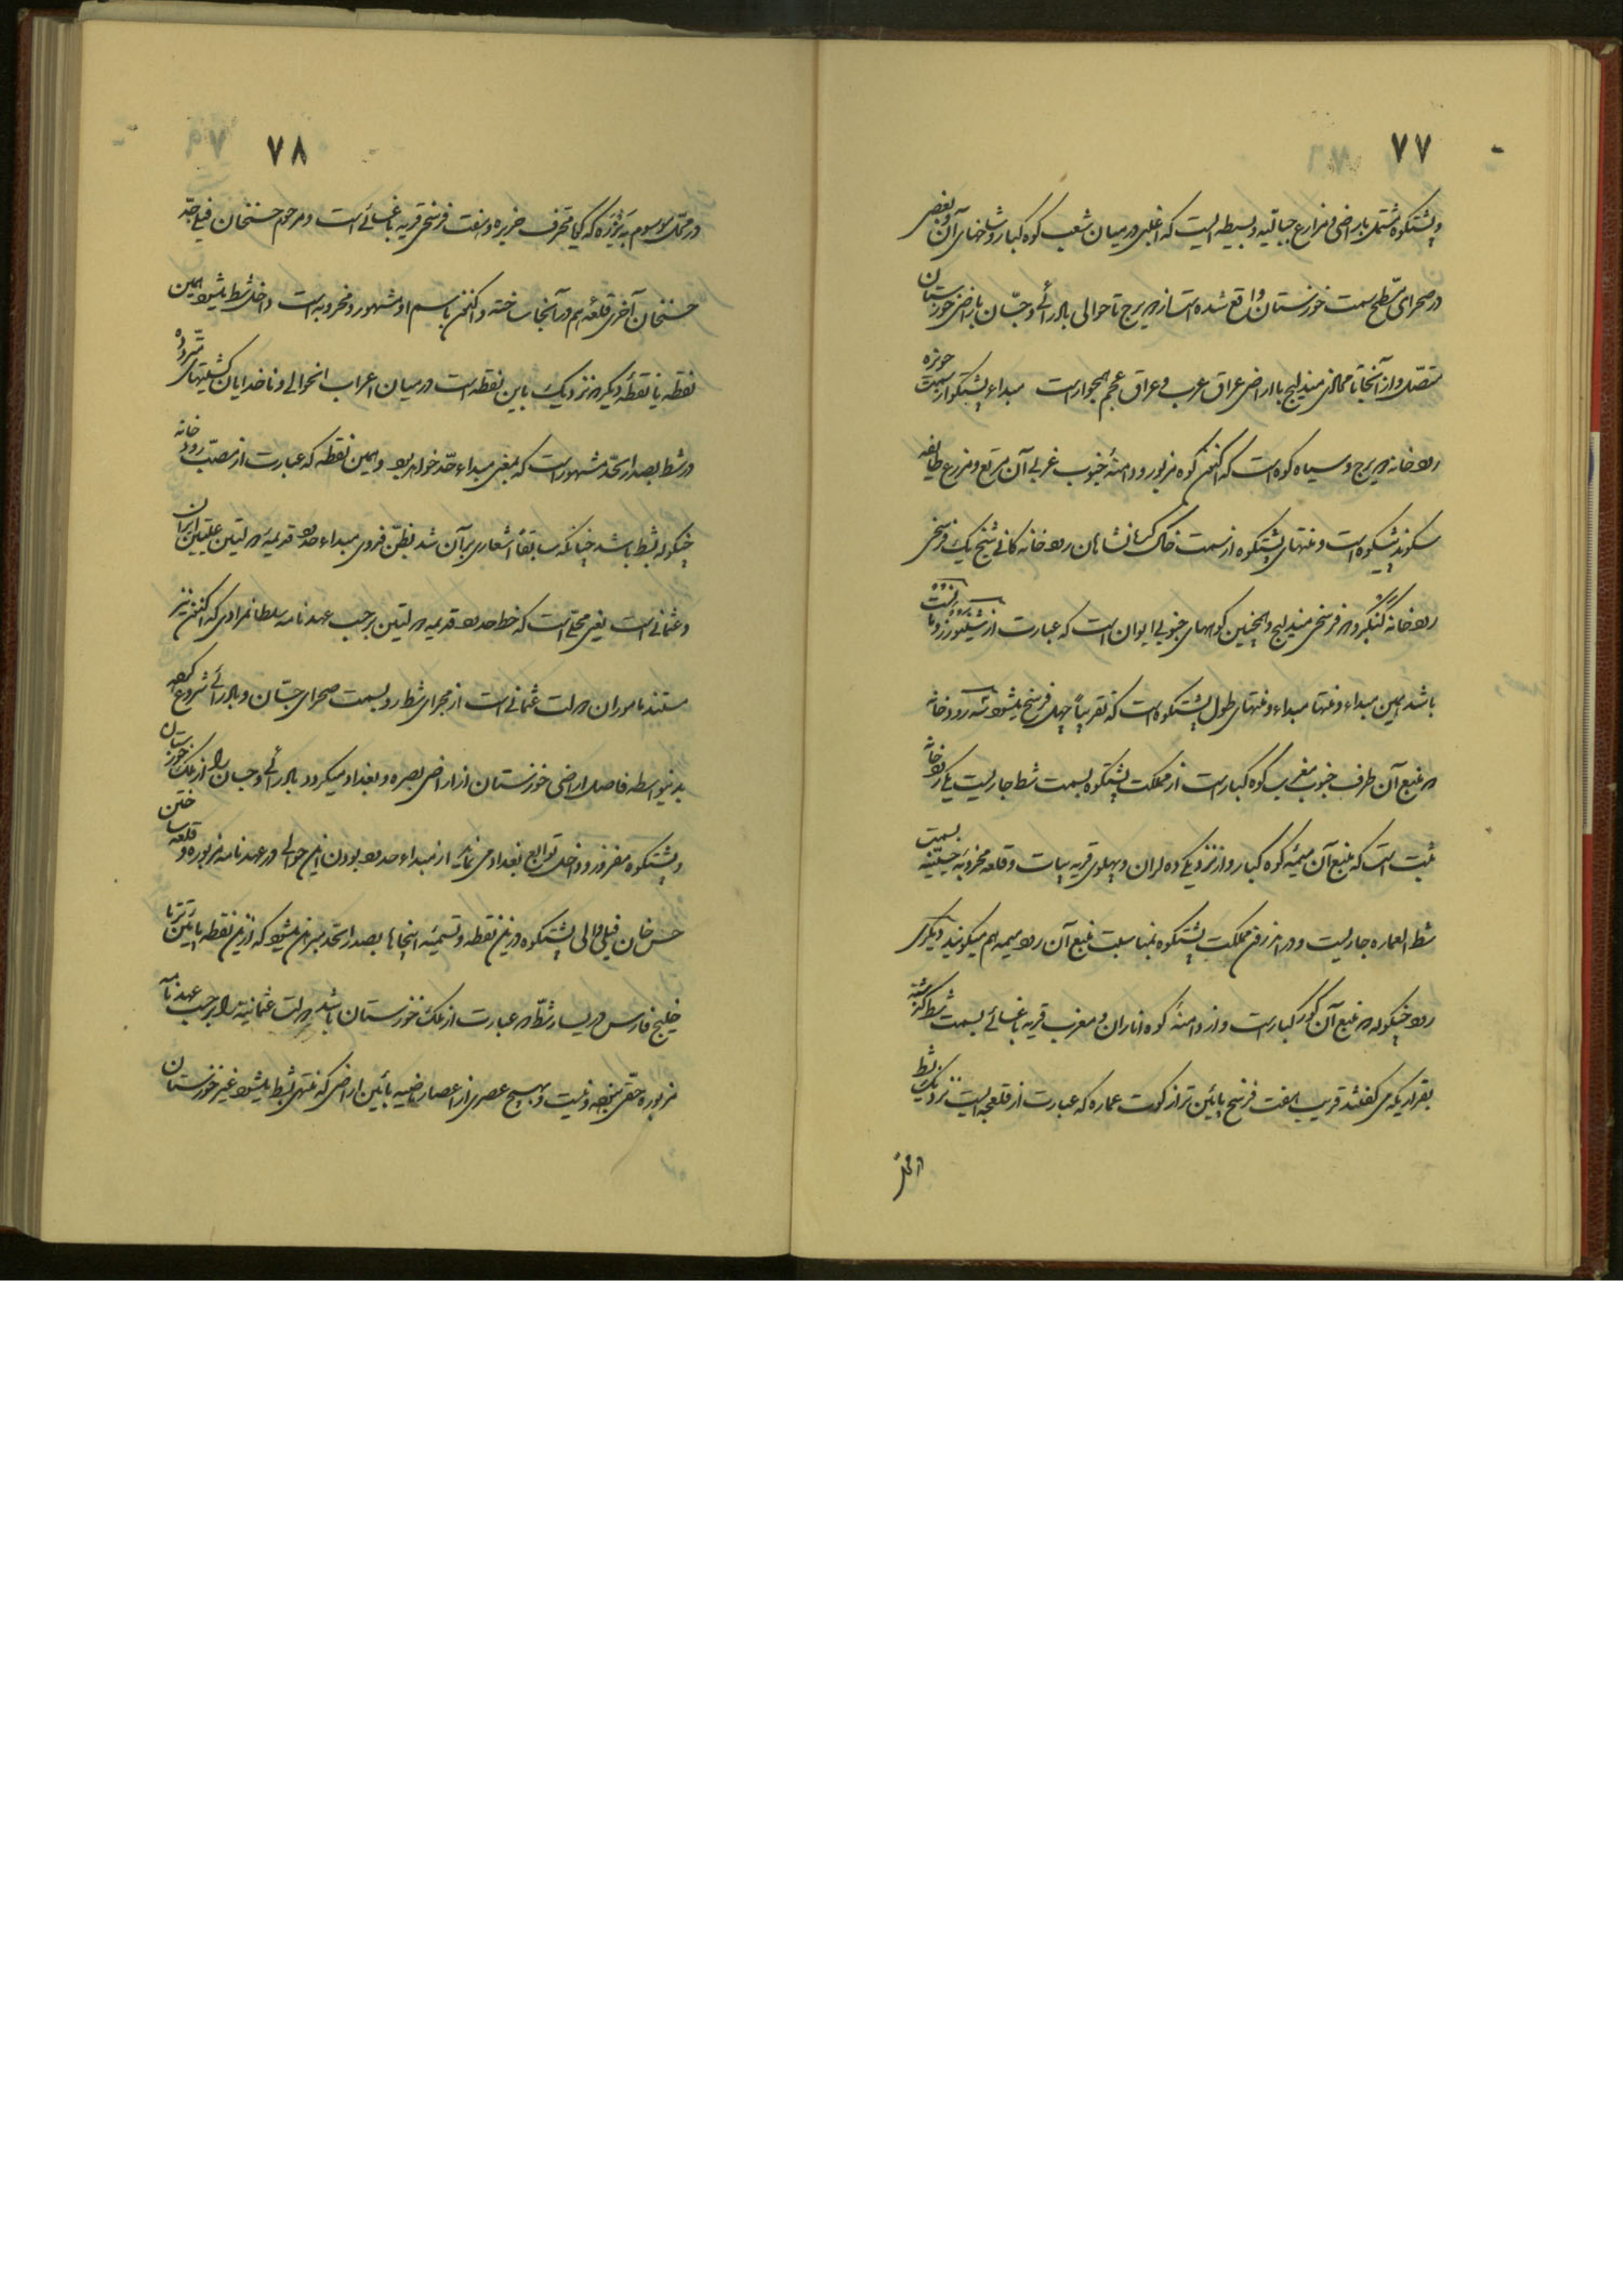 ۷۷
و پشتکوه مشتمل باراضی و مزارع جبالیه و بسیطه ایست که اغلبی در میان شعب کوه کبار و شاخهای آن و بعضی
در صحرای مسطح سمت خوزستان واقع شده است از دیرج تا حوالی بادرائی و جسان باراضی خوزستان
متصل و از آنجا تا محاذی مندلیج با اراضی عراق عرب و عراق عجم همجوار است مبداء پشتکوه از سمت حویزه
رودخانه دیرج و سیاه کوه است که اکنون کوه مزبور و دامنهٔ جنوب غربی آن مرتع و مزرع طایفه
سکوند پشتکوه است و منتهای پشتکوه از سمت خاک کرمانشاهان رودخانه کانی شیخ یک فرسخی
رودخانه کنگیر و فرسخی مندلیج و همچنین کوههای جنوبی ایوان است که عبارت از
باشد همین مبداء و منتها مبداء و منتهای طول پشتکوه است که تقریباً چهل فرسخ میشود سه رودخانه
که منبع آن طرف جنوب مغربی کوه کبار است از مملکت پشتکوه بسمت شط جاریست یکی رودخانه
است که منبع آن میمه کوه کبار و از نزدیکی ده لران و پهلوی قریه بیات و قلعه مخروبه حسینیه بسمت
شط العماره جاریست و در این طرف مملکت پشتکوه بمناسبت منبع آن رود میمه هم میگویند دیگری
رود چنگوله که منبع آن کور کبار است و از دامنهٔ کوه اناران و مغرب قریه باغسائی بسمت شط گذشته
بقراریکه می گفتند قریب هفت فرسخ پائین تر از کوت عماره که عبارت از قلعچه ایست نزدیک شط
۷۸
در محل موسوم به که کجا و هفت فرسخی قریه باغسائی است و مرحوم حسنخان فیلی جد
حسنخان آخری قلعه هم در آنجا ساخته و اکنون باسم او مشهور و مخروبه است داخل شط میشود همین
نقطه یا نقطهٔ دیگر که نزدیک باین نقطه است در میان اعراب انحوالی و ناخدایان کشتیهای
در شط بصدر الحد مشهور است که بمعنی مبداء حد خواهد بود و همین نقطه که عبارت از مصب رودخانه
چنگوله بشط باشد چنانکه سابقاً اشعاری بر آن شد بظن فدوی مبداء حدود قدیمه دولتین علیتین ایران
و عثمانی است یعنی محلی است که خط حدود قدیمه دولتین برحسب عهدنامه سلطانمرادی که اکنون نیز
مستند ماموران دولت عثمانی است از مجرای شط رو بسمت صحرای جسان و بادرائی شروع کرده
بدینواسطه فاصل اراضی خوزستان از اراضی بصره و بغداد میگردد بادرائی و جسان را از ملک خوزستان
و پشتکوه مفروز و داخل توابع بغداد می نماید از مبداء حدود بودن این حوالی در عهدنامه مزبوره و قلعه ساختن
حسن خان فیلی والی پشتکوه در این نقطه و تسمیهٔ اینجاها بصدر الحد مبرهن میشود که از این نقطه پائین تر تا
خلیج فارس در یسار شط که عبارت از ملک خوزستان باشد دولت عثمانیه را برحسب عهدنامه
مزبوره حقی نبوده و نیست و بهیچ عصری از اعصار ماضیه پائین اراضی که منتهی بشط میشود غیر خوزستان